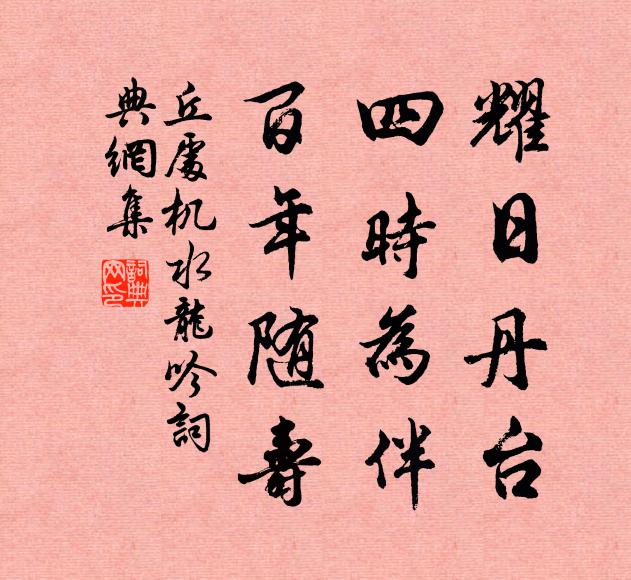 耀日丹台
四時為伴
百年随壽
丘處机水龍吟詞
典網集
詞典
网印